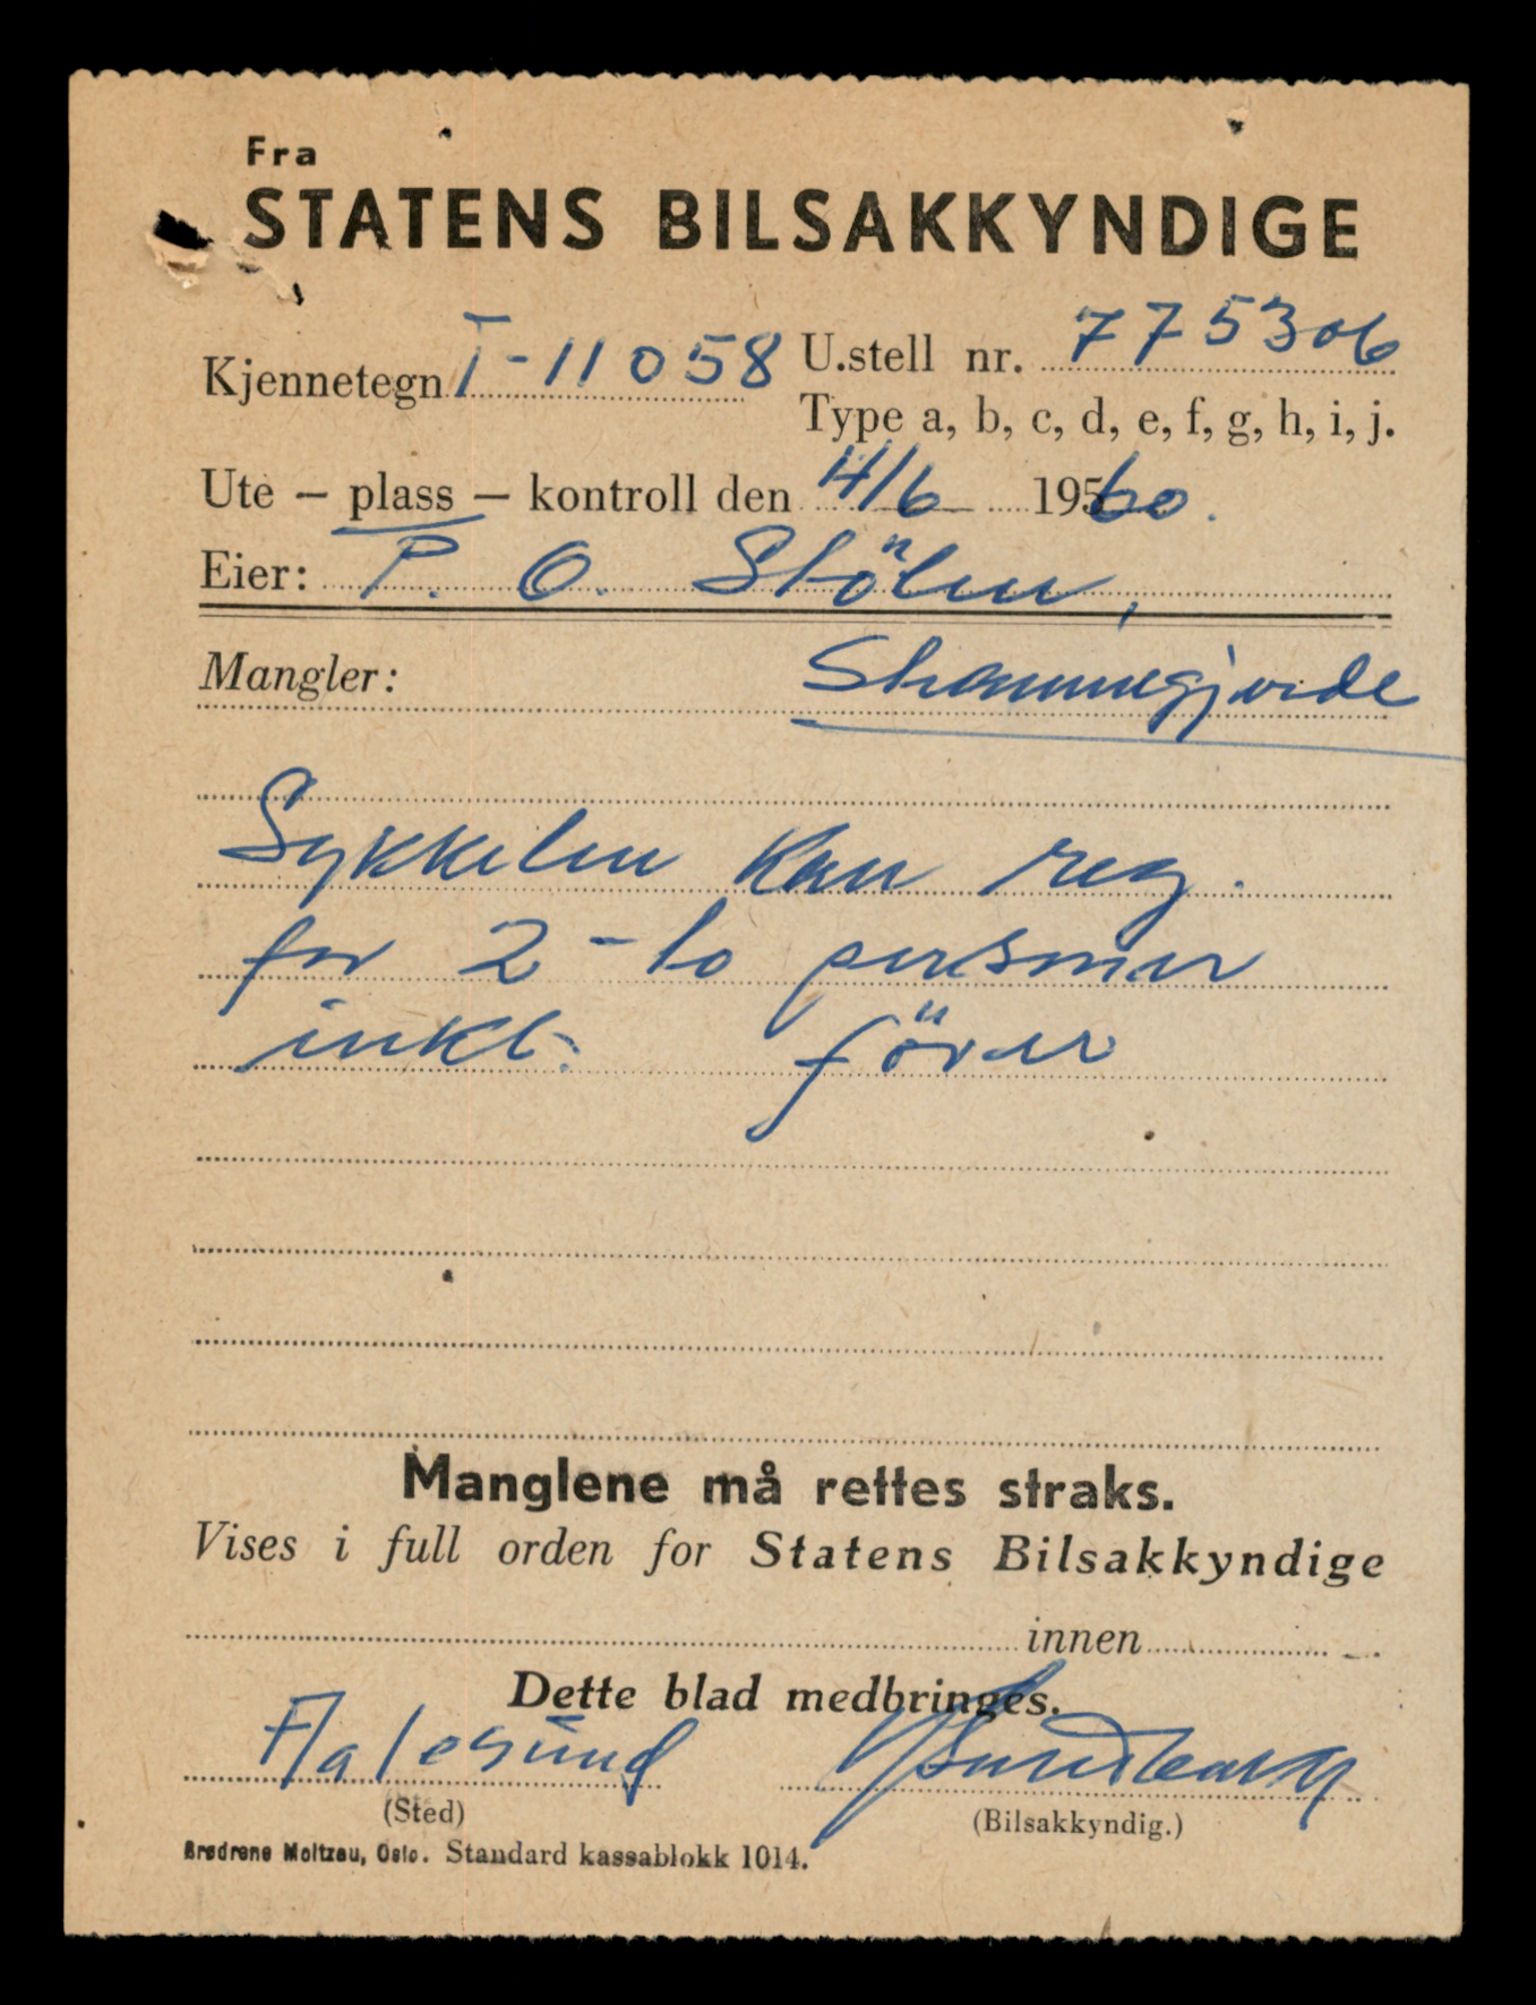 Fra
STATENS BILSAKKYNDIGE
Kjennetegn T-11058 U.stell nr. 775306
Type a, b, c, d, e, f, g, h, i, j.
Ute – plass – kontroll den 4/6 195 60.
Eier: P. O. Stölen,
Mangler:
Sykkelen kan reg.
for 2 - to personer
inkl. förer
Manglene må rettes straks.
Vises i full orden for Statens Bilsakkyndige
innen
Dette blad medbringes.
Aalesund
(Sted) (Bilsakkyndig.)
Brødrene Moltzau, Oslo. Standard kassablokk 1014.